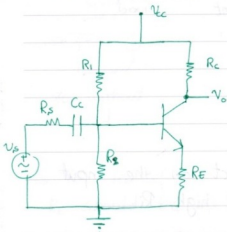 Vcc
R1
Rc
Vo
Rs
Cc
Vs
R2
RE